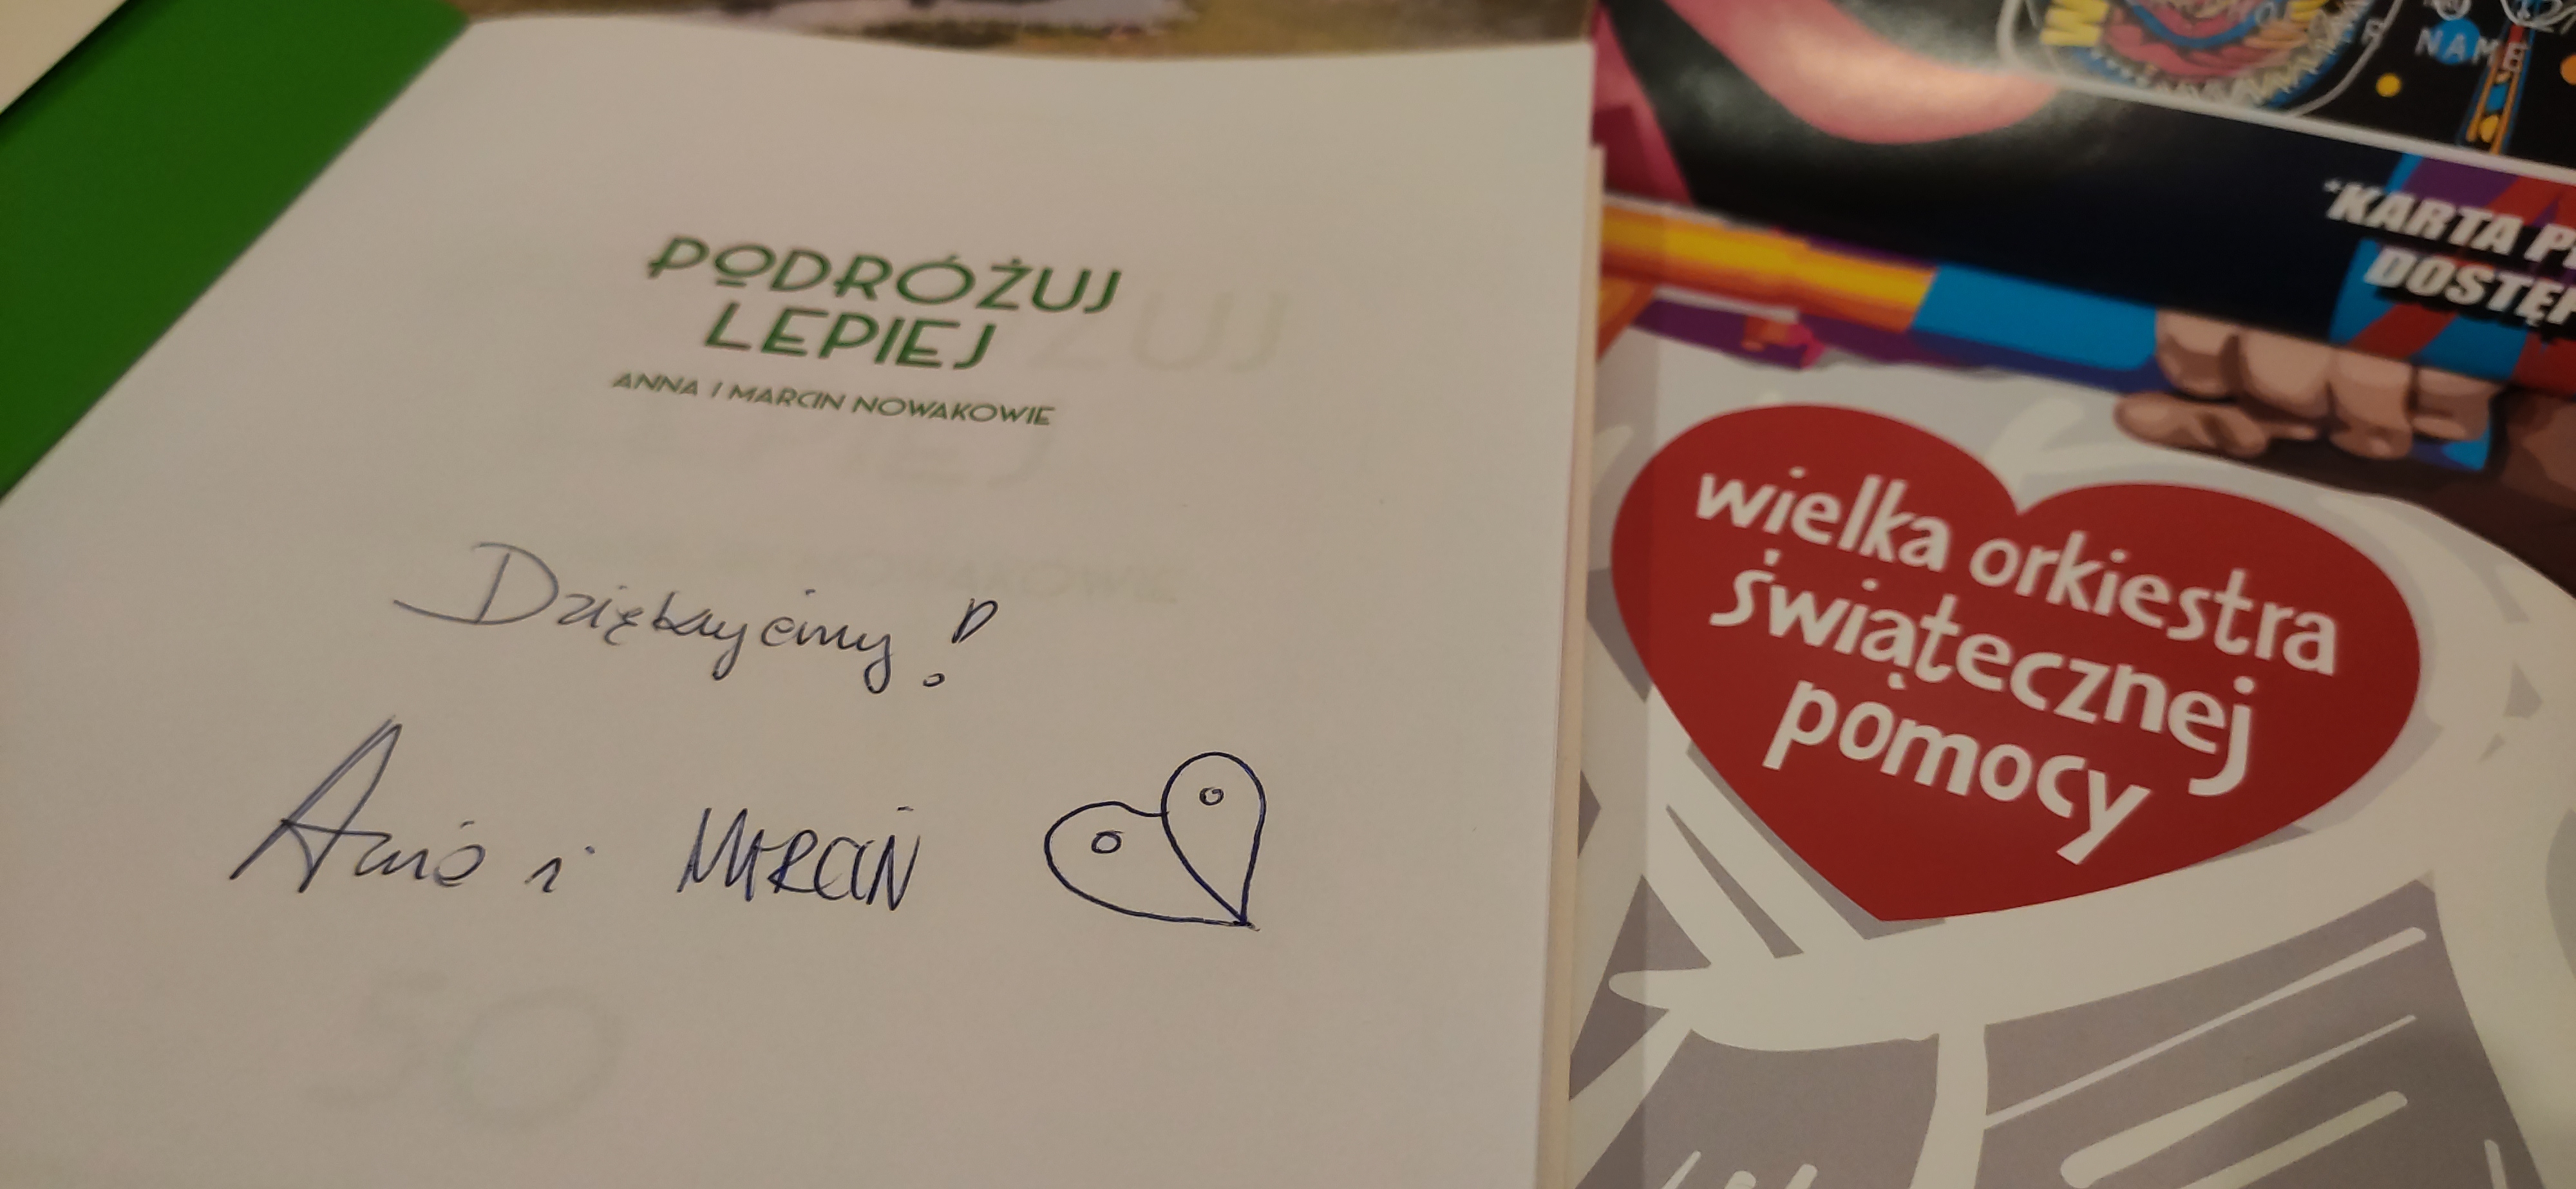 PODRÓŻUJ
LEPIEJ
ANNA I MARCIN NOWAKOWIE
Dziękujemy!
Ania i MARCIN
50
NAME
*KARTA
wielka orkiestra
świątecznej
pomocy